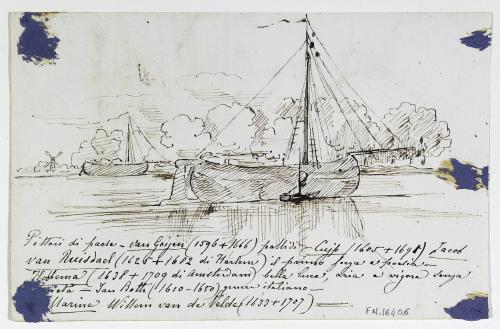 Pittori di paese - van Goijen (1596 + 1666) pallidi - Cuijp (1605 + 1691) Jacob
van Ruisdael (1626 + 1682 di Harlem) il primo forza e poesia
Hobbema (1638 + 1709 di Amsterdam) bella luce, aria e vigore senza
Jan Both (1610 - 1650) genere italiano -
Marine Willem van de Velde (1633 + 1707) -
F.N. 16408